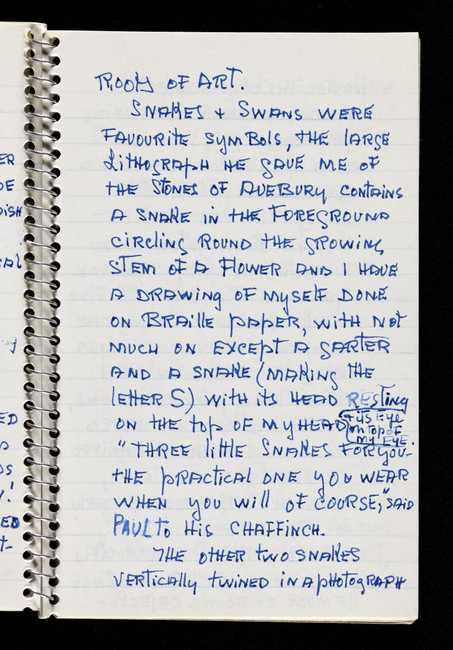 ER
DE
DISH
ROOM OF ART.
SNAKES + SWANS WERE
FAVOURITE SYMBOLS, THE LARGE
LITHOGRAPH HE GAVE ME OF
THE STONES OF AVEBURY CONTAINS
A SNAKE IN THE FOREGROUND
CIRCLING ROUND THE GROWING
STEM OF A FLOWER AND I HAVE
A DRAWING OF MYSELF DONE
ON BRAILLE PAPER, WITH NOT
MUCH ON EXCEPT A GARTER
AND A SNAKE (MAKING THE
LETTER S) WITH ITS HEAD RESTING
ON THE TOP OF MY HEAD
+ ITS EYE
ON TOP OF
MY EYE.
"THREE LITTLE SNAKES FOR YOU-
THE PRACTICAL ONE YOU WEAR
WHEN YOU WILL OF COURSE," SAID
PAUL TO HIS CHAFFINCH.
THE OTHER TWO SNAKES
VERTICALLY TWINED IN A PHOTOGRAPH